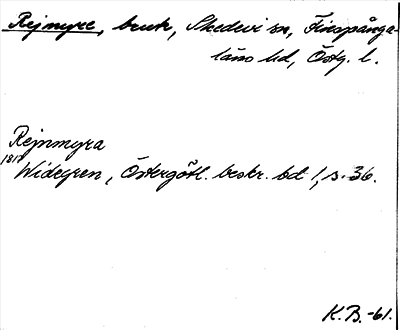 Rejmyre, bruk, Skedevi sn, Finspånga-
läns hd, Östg. l.
Rejnmyra
1817
Widegren, Östergötl. beskr. bd 1, s. 36.
K.B.-61.